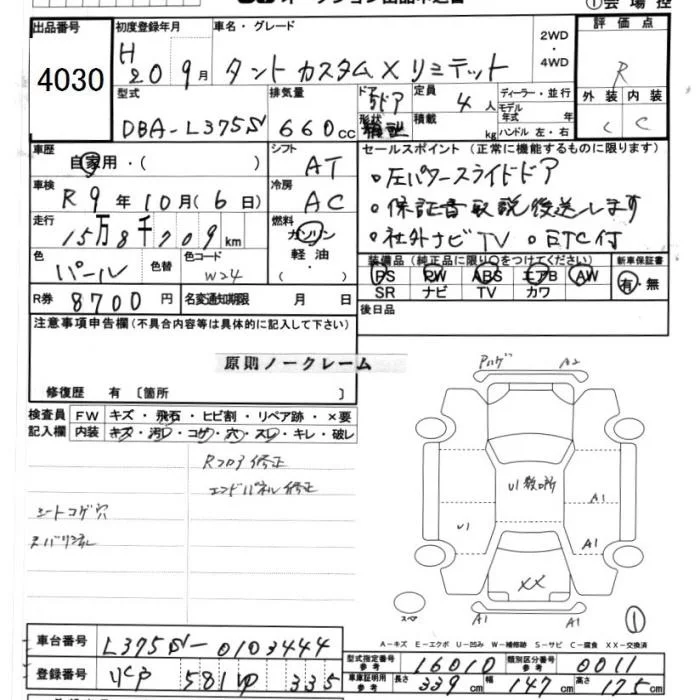 ①会場控
出品番号 初度登録年月 車名・グレード 2WD・4WD 評価点
4030 H 20 9月 タント カスタム X リミテッド R
型式 排気量 ドア形状 定員 積載 ディーラー・並行 モデル年式 年 ハンドル 左・右 外装 内装
DBA-L375S 660cc 5ドア 4人 kg C C
車歴 自家用・( ) シフト AT
セールスポイント(正常に機能するものに限ります)
車検 R9年10月(6日) 冷房 AC
・左パワースライドドア
・保証書取説後送します
走行 15万8千209km 燃料 ガソリン 軽油・
・社外ナビTV ・ETC付
色 パール 色替 色コード W24
装備品(純正品に限り○をつけてください) 新車保証書
PS PW ABS エアB AW 有・無
SR ナビ TV カワ
R券 8700円 名変通知期限 月 日
後日品
注意事項申告欄(不具合内容等は具体的に記入して下さい)
原則ノークレーム
修復歴 有〔箇所 〕
検査員記入欄 FW キズ・飛石・ヒビ割・リペア跡・×要
内装 キズ・汚レ・コゲ・穴・スレ・キレ・破レ
Rフロア修正
エンドパネル修正
シートコゲ穴
ヌバリ済ル
Pハゲ A2
U1数ヶ所
A1
U1 A1
XX
A1 A1
スペア
①
A-キズ E-エクボ U-凹み W-補修跡 S-サビ C-腐食 XX-交換済
車台番号 L375S-0103444
型式指定番号 参考 16010 類別区分番号 参考 0011
登録番号 581 ゆ 335
車庫証明用 参考 長さ 339cm 幅 147cm 高さ 175cm